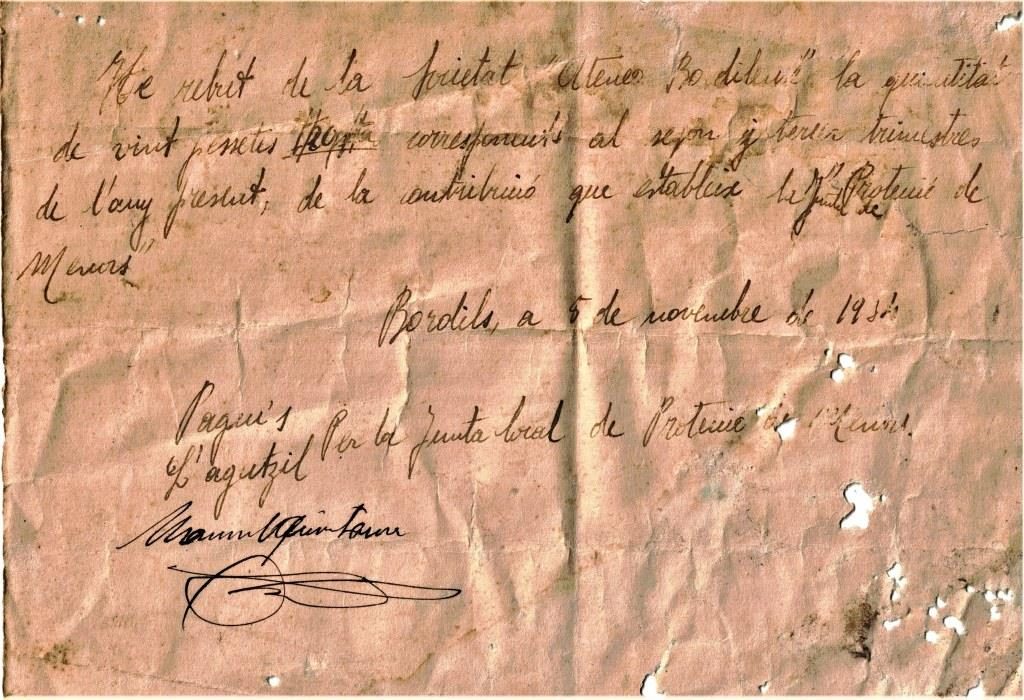 He rebut de la Societat "Ateneo Bordilenc" la quantitat
de vint pessetes corresponents al segon y tercer trimestres
de l'any present, de la contribució que estableix la "Junta de Protecció de
Menors"
Bordils, a 5 de novembre de 193
Pagui's Per la Junta local de Protecció de Menors.
L'agutzil
Manuel Quintana